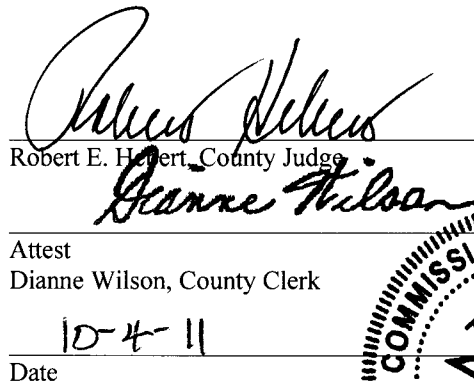 Robert Hebert
Robert E. Hebert, County Judge
Dianne Wilson
Attest
Dianne Wilson, County Clerk
10-4-11
Date
COMMISSI